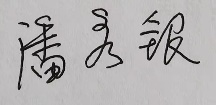 潘秀银